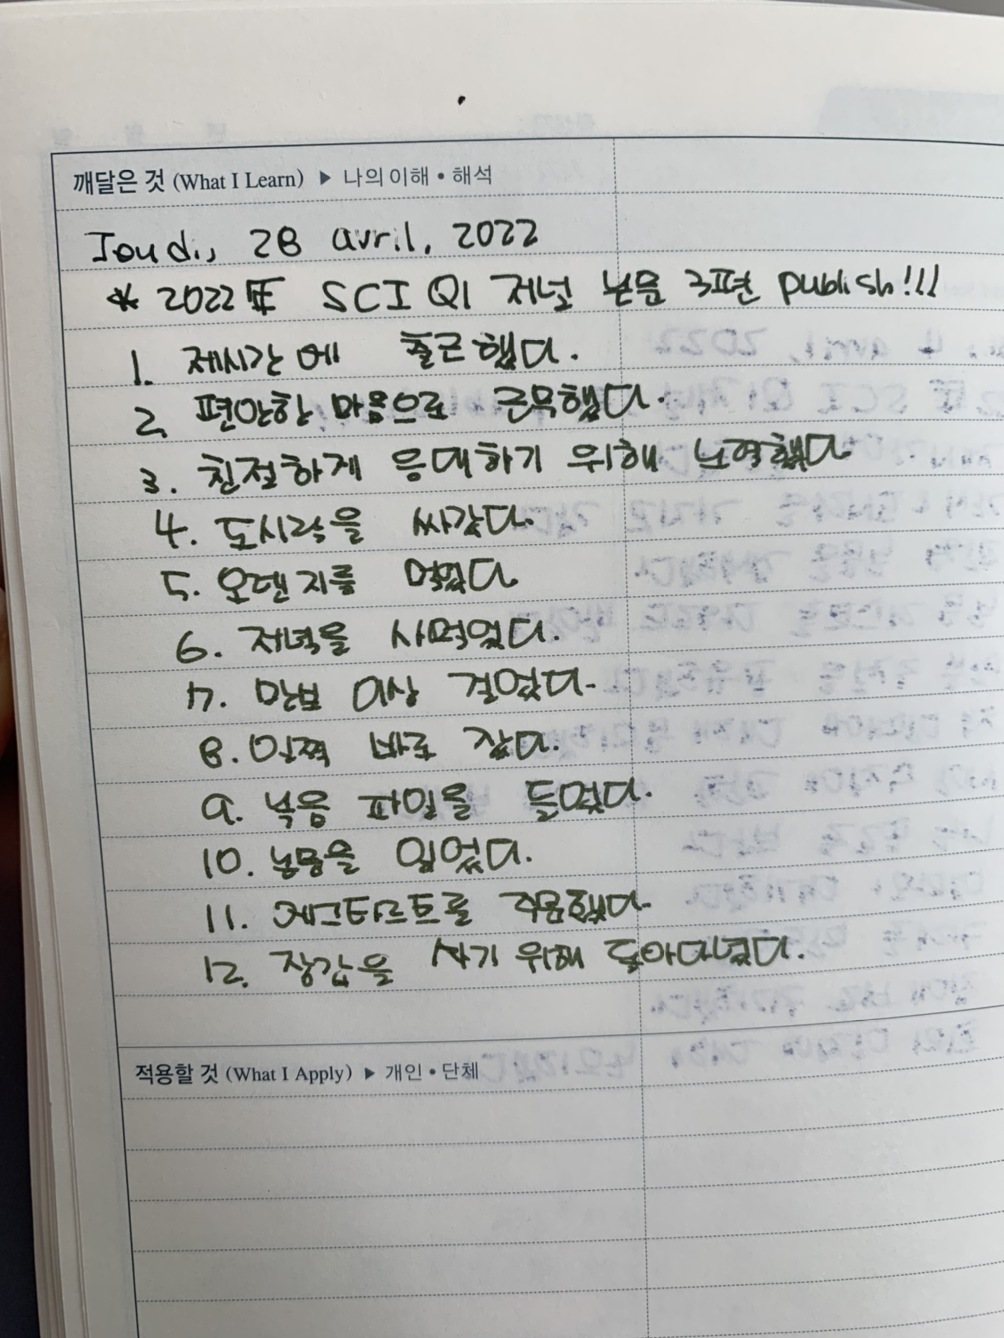 깨달은 것 (What I Learn) ▶ 나의 이해 • 해석
Joudi, 28 avril, 2022
* 2022年 SCI Q1 저널 논문 3편 publish!!!
1. 제시간에 출근했다.
2. 편안한 마음으로 근무했다.
3. 친절하게 응대하기 위해 노력했다
4. 도시락을 싸갔다.
5. 오렌지를 먹었다
6. 저녁을 사먹었다.
7. 만보 이상 걸었다.
8. 일찍 바로 잤다.
9. 녹음 파일을 들었다.
10. 논문을 읽었다.
11. 에그타르트를 주문했다.
12. 장갑을 사기 위해 돌아다녔다.
적용할 것 (What I Apply) ▶ 개인 • 단체